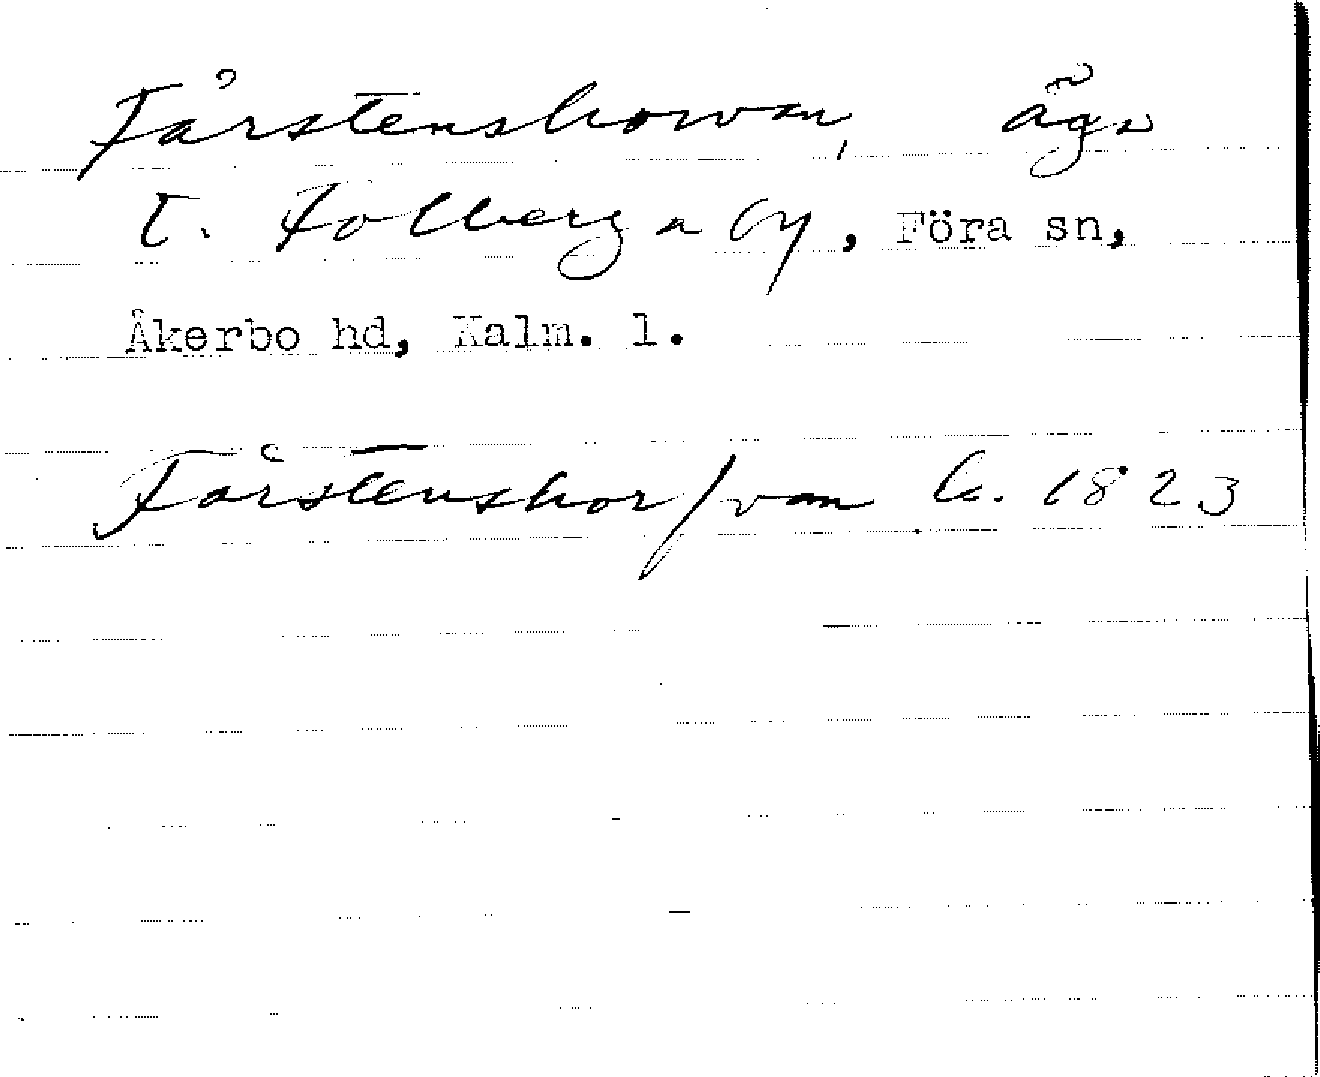 Fårstenshorvan, äga
t. Folberga by, Föra sn,
Åkerbo hd, Kalm. l.
Fårstenshor/van k. 1823